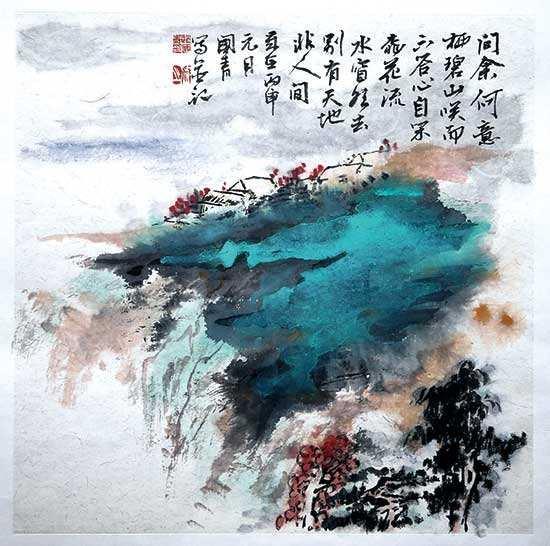 问余何意
栖碧山咲而
不答心自闲
桃花流
水窅然去
别有天地
非人间
岁在丙申
元月
国青